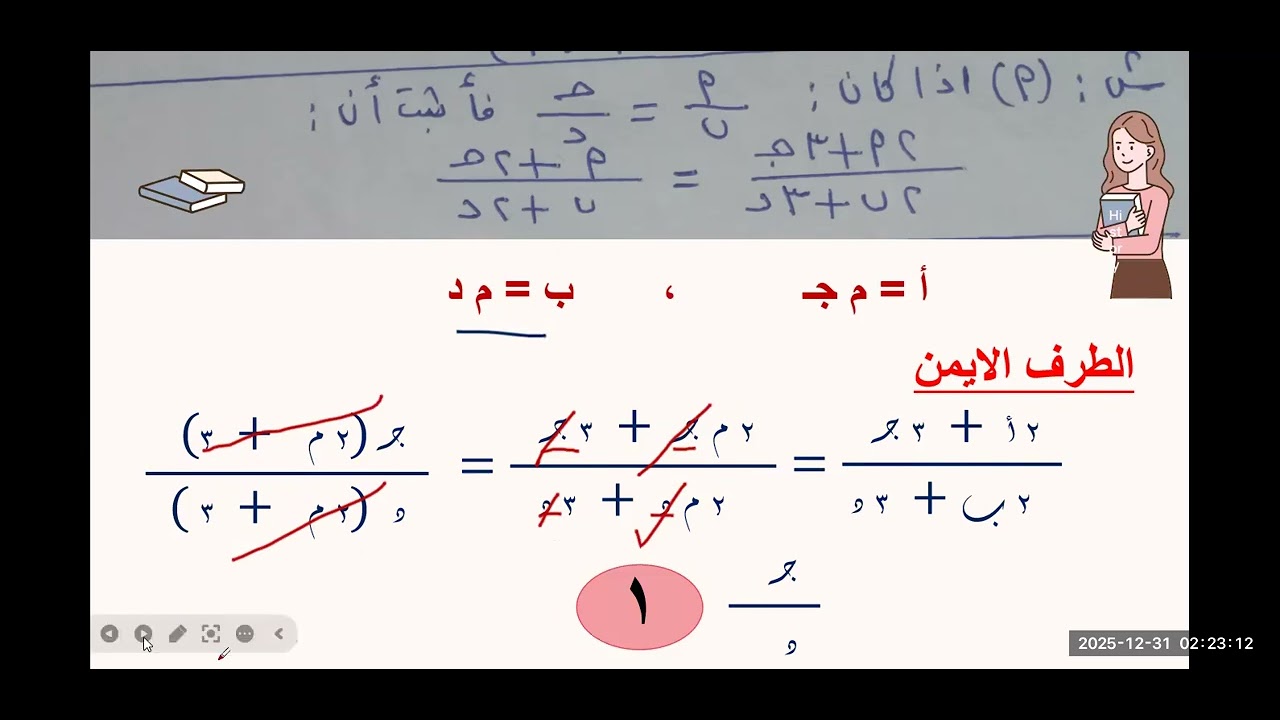 ش : (٢) اذا كان : أ/ب = جـ/د فأثبت أن :
٢أ + ٣جـ / ٢ب + ٣د = أ + ٢جـ / ب + ٢د
Hi
st
or
y
أ = م جـ ، ب = م د
الطرف الايمن
٢ أ + ٣ جـ / ٢ ب + ٣ د = ٢ م جـ + ٣ جـ / ٢ م د + ٣ د = جـ (٢ م + ٣) / د (٢ م + ٣)
جـ / د ١
2025-12-31 02:23:12